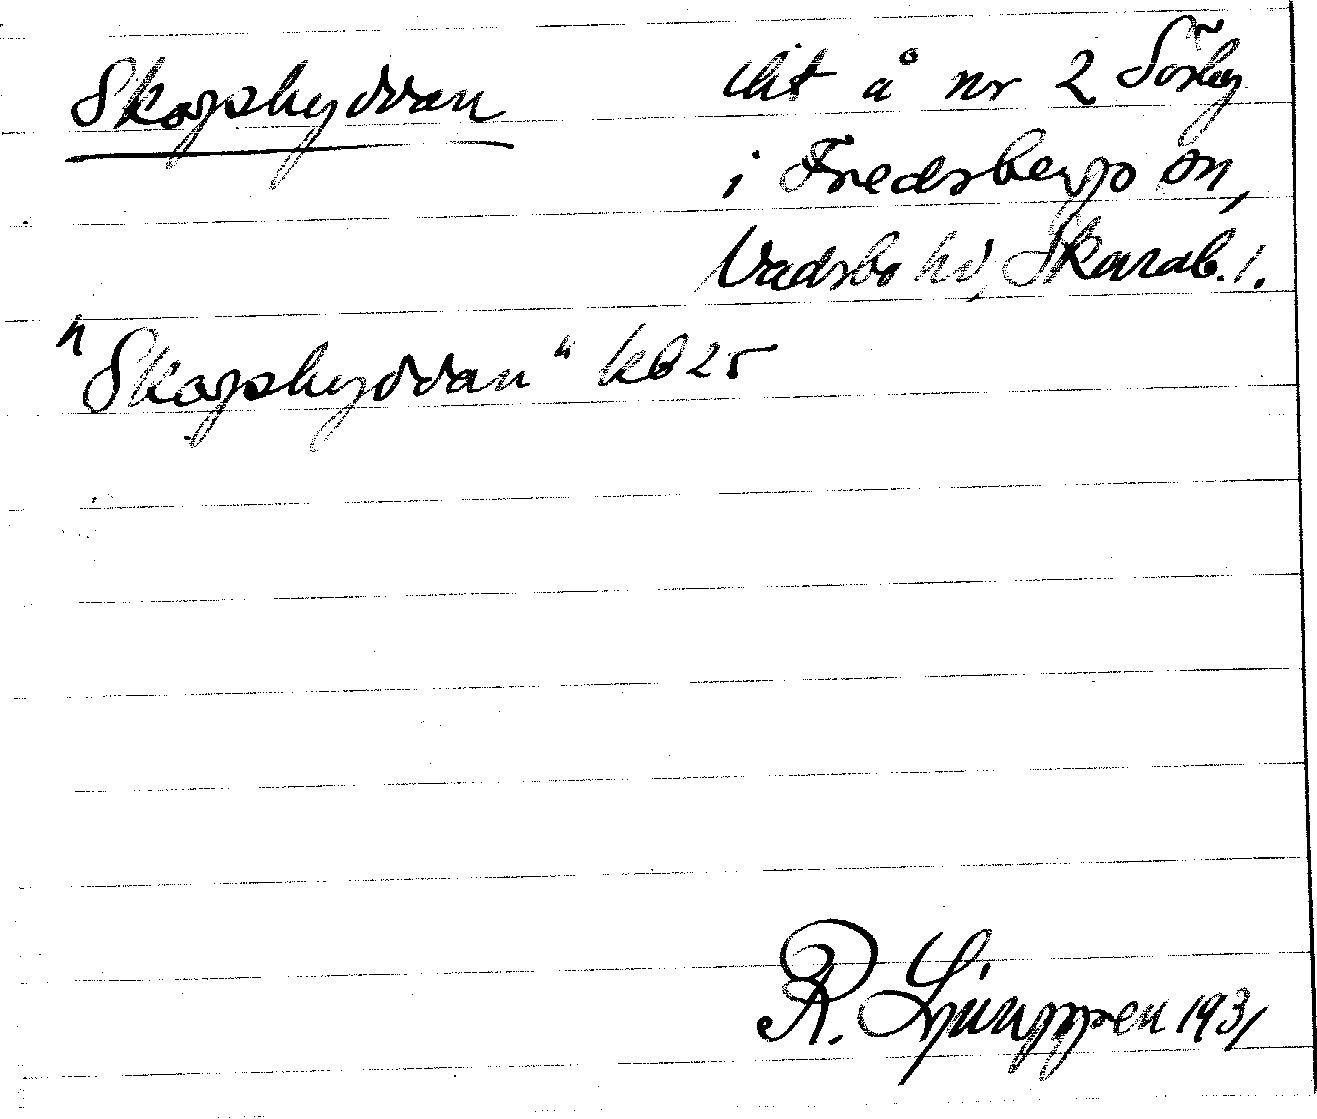 Skogshyddan
lht å nr 2 Sörby
i Fredsbergs sn,
Vadsbo hd, Skarab. l.
"Skogshyddan" kb 25
R. Ljunggren 1931